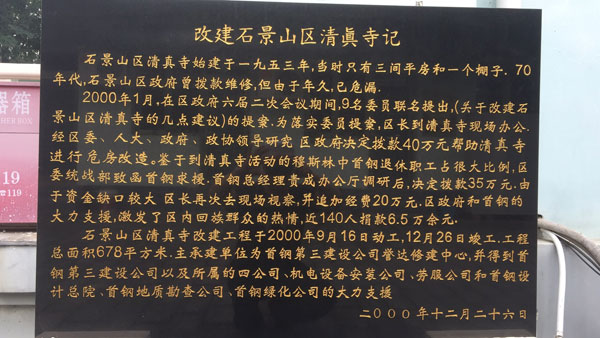 改建石景山区清真寺记
石景山区清真寺始建于一九五三年,当时只有三间平房和一个棚子.70
年代,石景山区政府曾拨款维修,但由于年久,已危漏.
2000年1月,在区政府六届二次会议期间,9名委员联名提出,(关于改建石
景山区清真寺的几点建议)的提案.为落实委员提案,区长到清真寺现场办公.
经区委、人大、政府、政协领导研究 区政府决定拨款40万元帮助清真寺
进行危房改造。鉴于到清真寺活动的穆斯林中首钢退休职工占很大比例,区
委统战部致函首钢求援.首钢总经理责成办公厅调研后,决定拨款35万元.由
于资金缺口较大 区长再次去现场视察,并追加经费20万元.区政府和首钢的
大力支援,激发了区内回族群众的热情,近140人捐款6.5万余元.
石景山区清真寺改建工程于2000年9月16日动工,12月26日竣工.工程
总面积678平方米.主承建单位为首钢第三建设公司誉达修建中心,并得到首
钢第三建设公司以及所属的四公司、机电设备安装公司、劳服公司和首钢设
计总院、首钢地质勘查公司、首钢绿化公司的大力支援
二000年十二月二十六日
器箱
HER BOX
19
警119